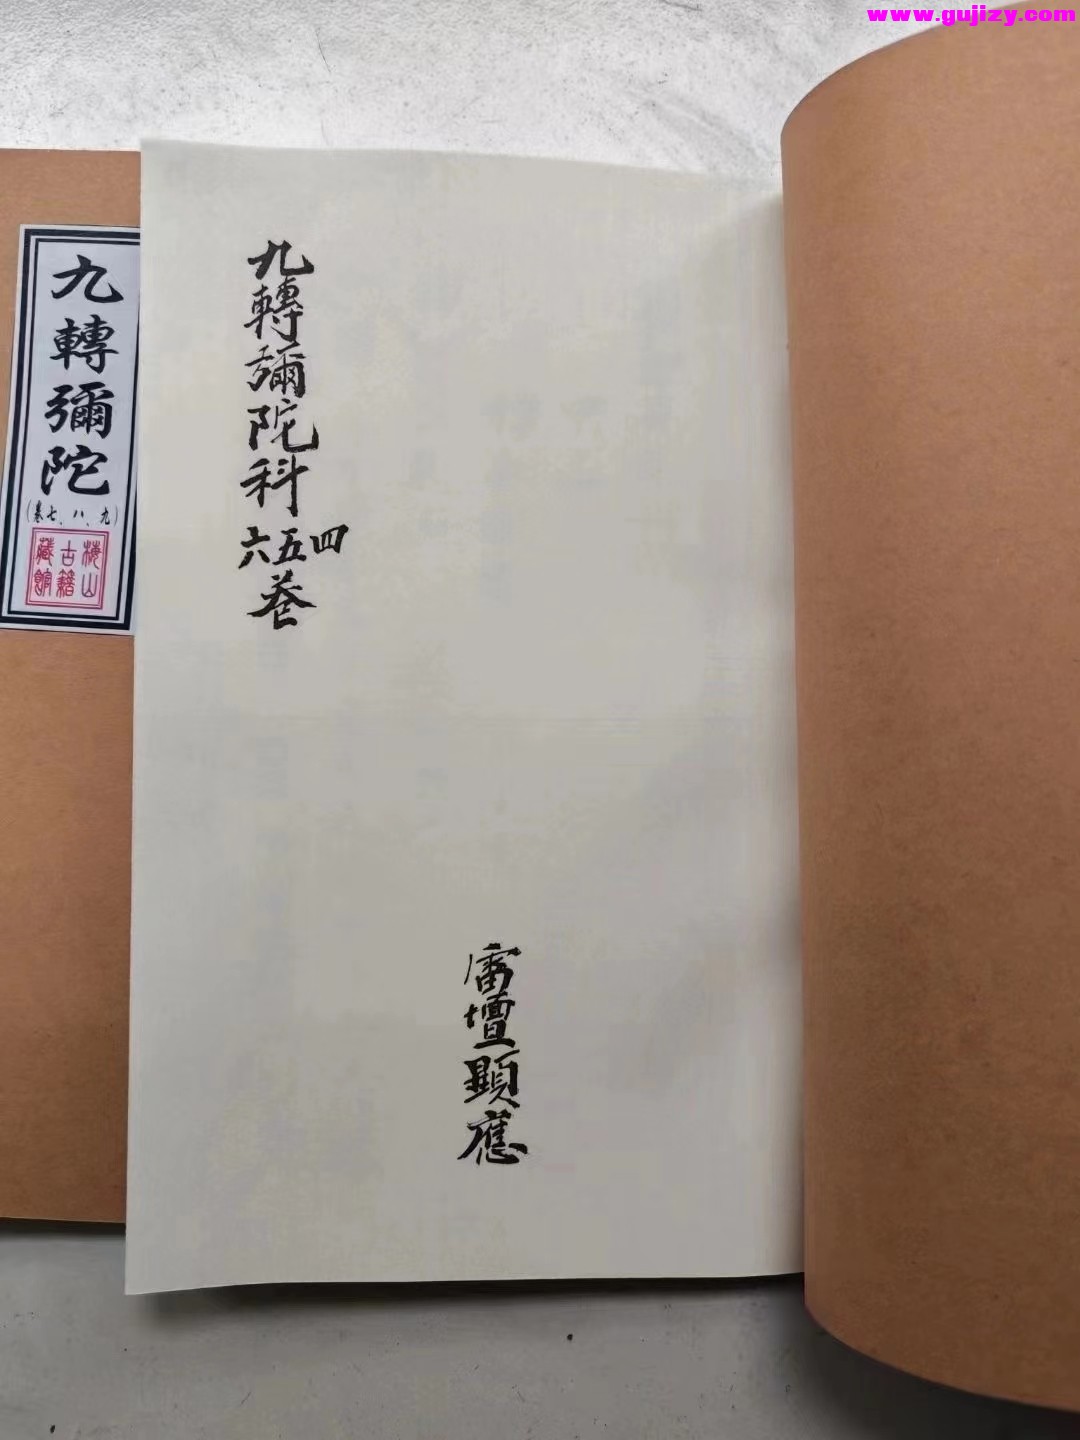 www.gujizy.com
九轉彌陀科
四五六
卷
雷壇顯應
九轉彌陀
(卷七、八、九)
梅山
古籍
藏館